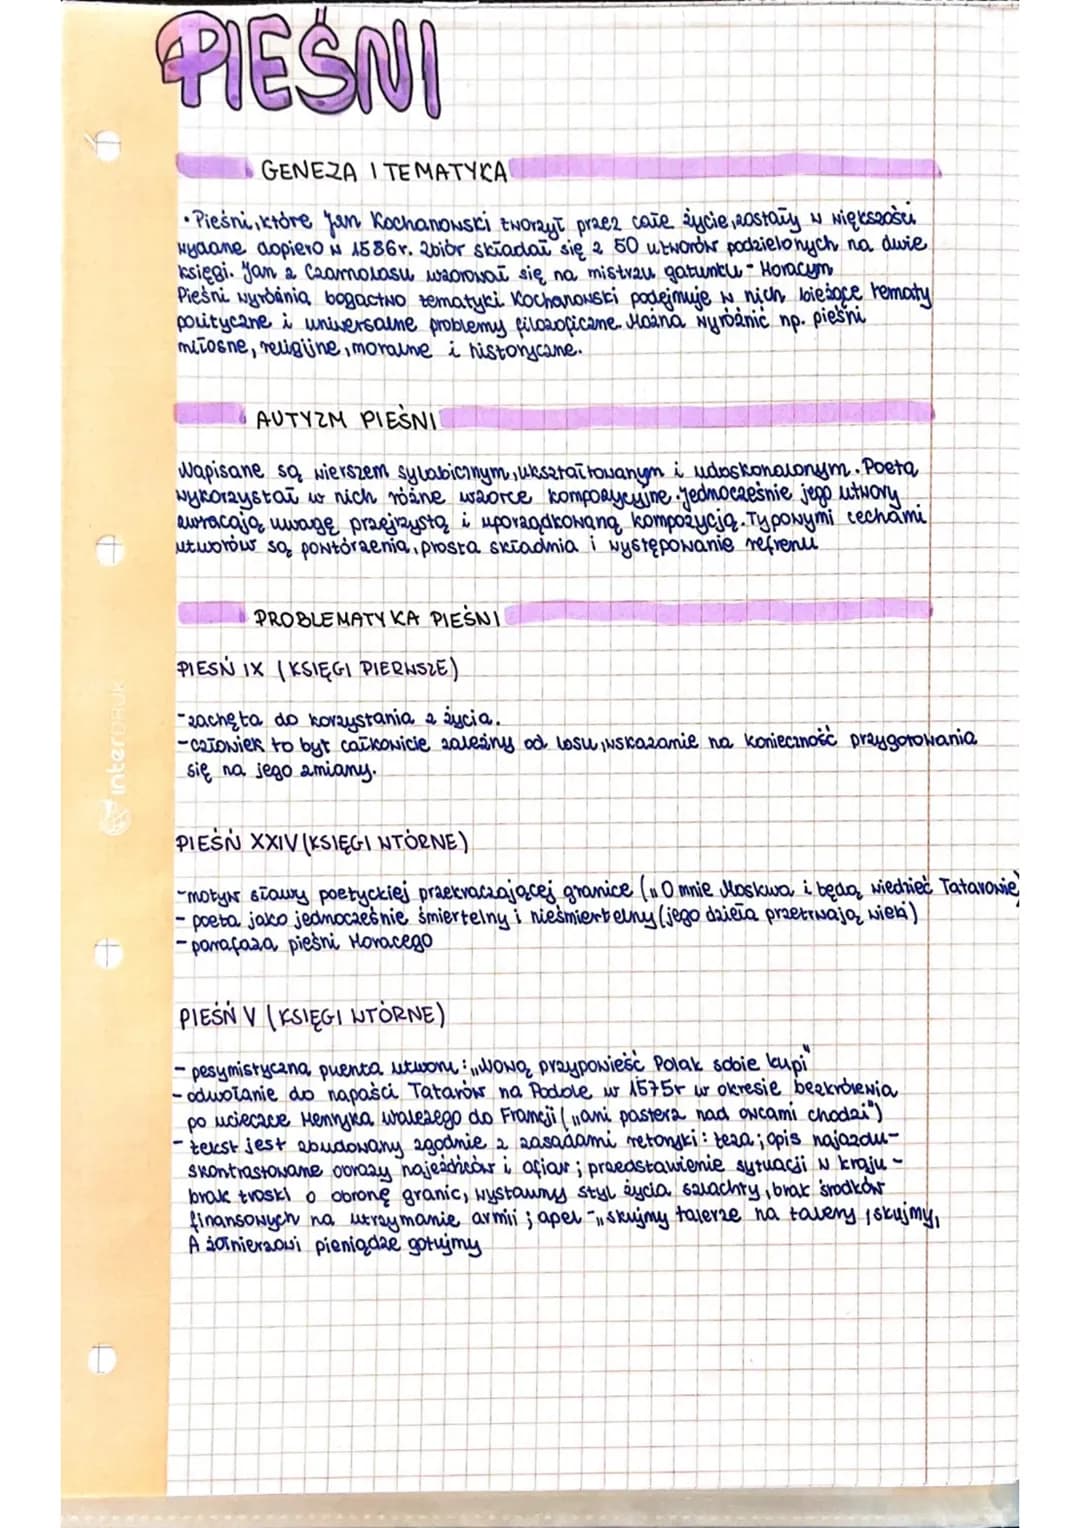 PIEŚNI
GENEZA I TEMATYKA
• Pieśni, które Jan Kochanowski tworzył przez całe życie, zostały w większości
wydane dopiero w 1586r. Zbiór składał się z 50 utworów podzielonych na dwie
księgi. Jan z Czarnolasu wzorował się na mistrzu gatunku - Horacym
Pieśni wyróżnia bogactwo tematyki Kochanowski podejmuje w nich bieżące tematy
polityczne i uniwersalne problemy filozoficzne. Można wyróżnić np. pieśni
miłosne, religijne, moralne i historyczne.
AUTYZM PIEŚNI
Napisane są wierszem sylabicznym, ukształtowanym i udoskonalonym. Poeta
wykorzystał w nich różne wzorce kompozycyjne. Jednocześnie jego utwory
zwracają uwagę przejrzystą i uporządkowaną kompozycją. Typowymi cechami
utworów są powtórzenia, prosta składnia i występowanie refrenu
PROBLEMATYKA PIEŚNI
PIESŃ IX (KSIĘGI PIERWSZE)
- zachęta do korzystania z życia.
- człowiek to byt całkowicie zależny od losu, wskazanie na konieczność przygotowania
się na jego zmiany.
PIEŚŃ XXIV (KSIĘGI WTÓRNE)
- motyw sławy poetyckiej przekraczającej granice („O mnie Moskwa i będą wiedzieć Tatarowie)
- poeta jako jednocześnie śmiertelny i nieśmiertelny (jego dzieła przetrwają wieki)
- parafaza pieśni Horacego
PIEŚŃ V (KSIĘGI WTÓRNE)
- pesymistyczna puenta utworu: „Nową przypowieść Polak sobie kupi"
- odwołanie do napaści Tatarów na Podole w 1575r w okresie bezkrólewia
po ucieczce Henryka Walezego do Francji („ani pasterz nad owcami chodzi")
- tekst jest zbudowany zgodnie z zasadami retoryki: teza; opis najazdu-
skontrastowane obrazy najeźdźców i ofiar; przedstawienie sytuacji w kraju -
brak troski o obronę granic, wystawny styl życia szlachty, brak środków
finansowych na utrzymanie armii; apel - „skujmy talerze na talery, skujmy,
A żołnierzowi pieniądze gotujmy
interDRUK